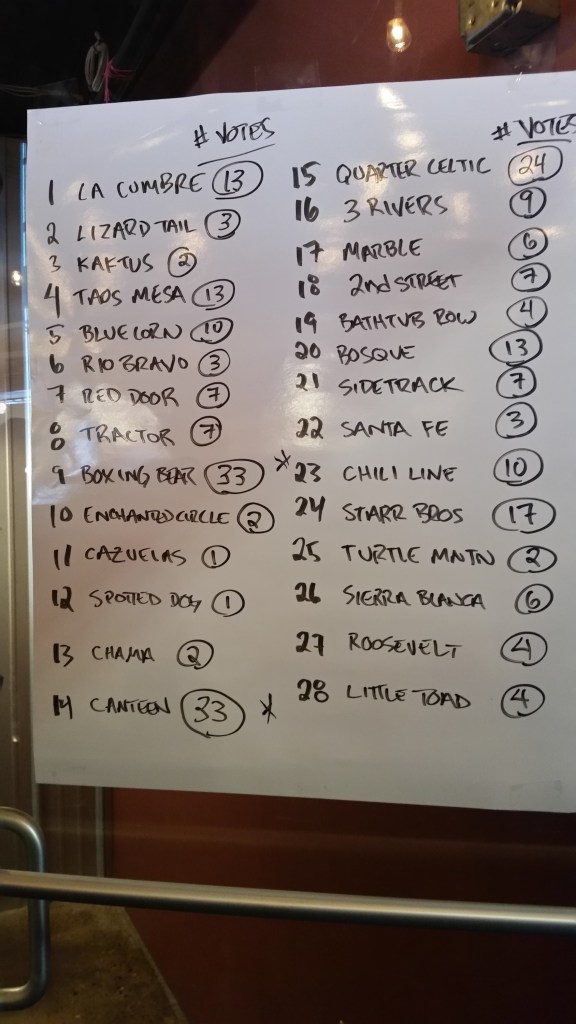 # VOTES
1 LA CUMBRE 13
2 LIZARD TAIL 3
3 KAKTUS 2
4 TAOS MESA 13
5 BLUE CORN 10
6 RIO BRAVO 3
7 RED DOOR 7
8 TRACTOR 7
9 BOXING BEAR 33 *
10 ENCHANTED CIRCLE 2
11 CAZUELAS 1
12 SPOTTED DOG 1
13 CHAMA 2
14 CANTEEN 33 *
# VOTES
15 QUARTER CELTIC 24
16 3 RIVERS 9
17 MARBLE 6
18 2nd STREET 7
19 BATHTUB ROW 4
20 BOSQUE 13
21 SIDETRACK 7
22 SANTA FE 3
23 CHILI LINE 10
24 STARR BROS 17
25 TURTLE MNTN 2
26 SIERRA BLANCA 6
27 ROOSEVELT 4
28 LITTLE TOAD 4